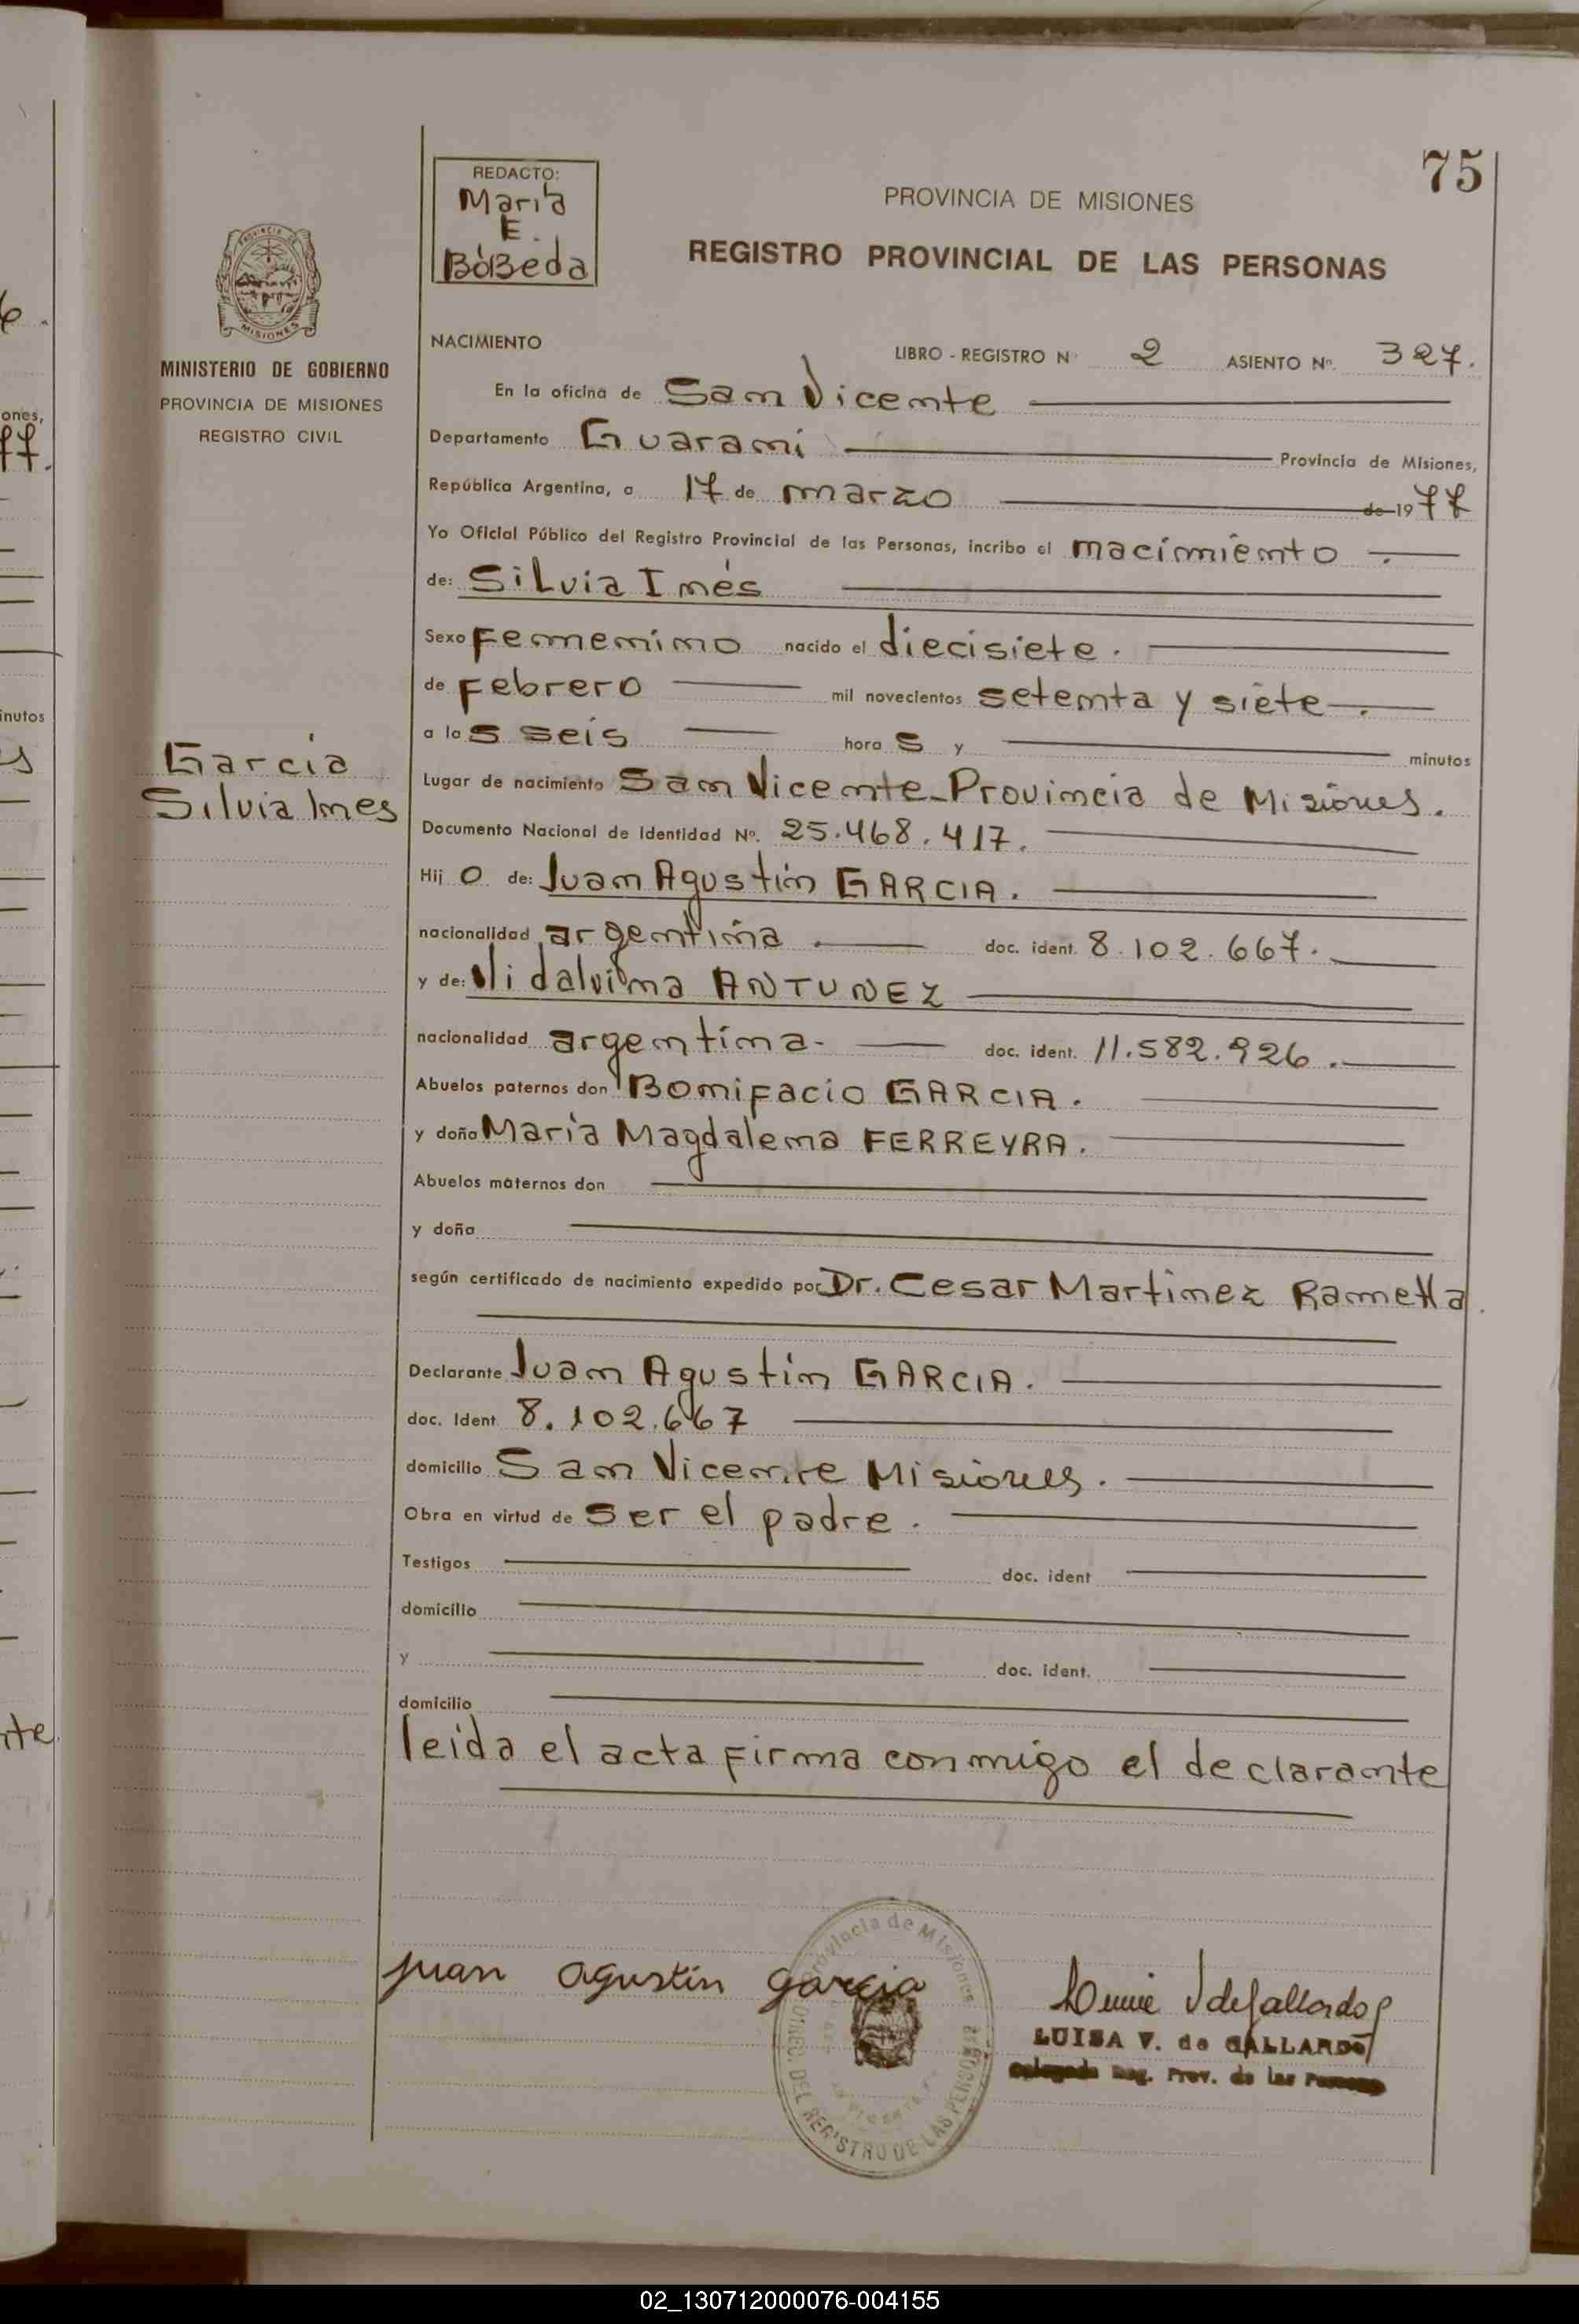 75
REDACTO:
María
E.
BóBeda
PROVINCIA DE MISIONES
REGISTRO PROVINCIAL DE LAS PERSONAS
PROVINCIA DE
MISIONES
MINISTERIO DE GOBIERNO
PROVINCIA DE MISIONES
REGISTRO CIVIL
NACIMIENTO LIBRO - REGISTRO Nº 2 ASIENTO Nº. 327.
En la oficina de San Vicente
Departamento Guaraní Provincia de Misiones,
República Argentina, a 17 de marzo de 1977
Yo Oficial Público del Registro Provincial de las Personas, incribo el nacimiento.
de: Silvia Inés
Sexo Femenino nacido el diecisiete.
de Febrero mil novecientos setenta y siete.
a las seis horas y minutos
García
Silvia Ines
Lugar de nacimiento San Vicente-Provincia de Misiones.
Documento Nacional de Identidad Nº. 25.468.417.
Hijo de: Juan Agustín GARCIA.
nacionalidad argentina doc. ident. 8.102.667.
y de: Vidalvina ANTUNEZ
nacionalidad argentina- doc. ident. 11.582.926.
Abuelos paternos don Bonifacio GARCIA.
y doña María Magdalena FERREYRA.
Abuelos maternos don
y doña
según certificado de nacimiento expedido por Dr. Cesar Martinez Rametta.
Declarante Juan Agustín GARCIA.
doc. Ident. 8.102.667
domicilio San Vicente Misiones.
Obra en virtud de ser el padre.
Testigos doc. ident
domicilio
y doc. ident.
domicilio
leida el acta firma conmigo el declarante
juan agustín garcia
Provincia de Misiones
DIREC. DEL REGISTRO DE LAS PERSONAS
LUISA V. de GALLARDO
Delegada Reg. Prov. de las Personas
02_130712000076-004155